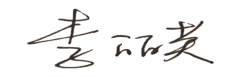 李丽英